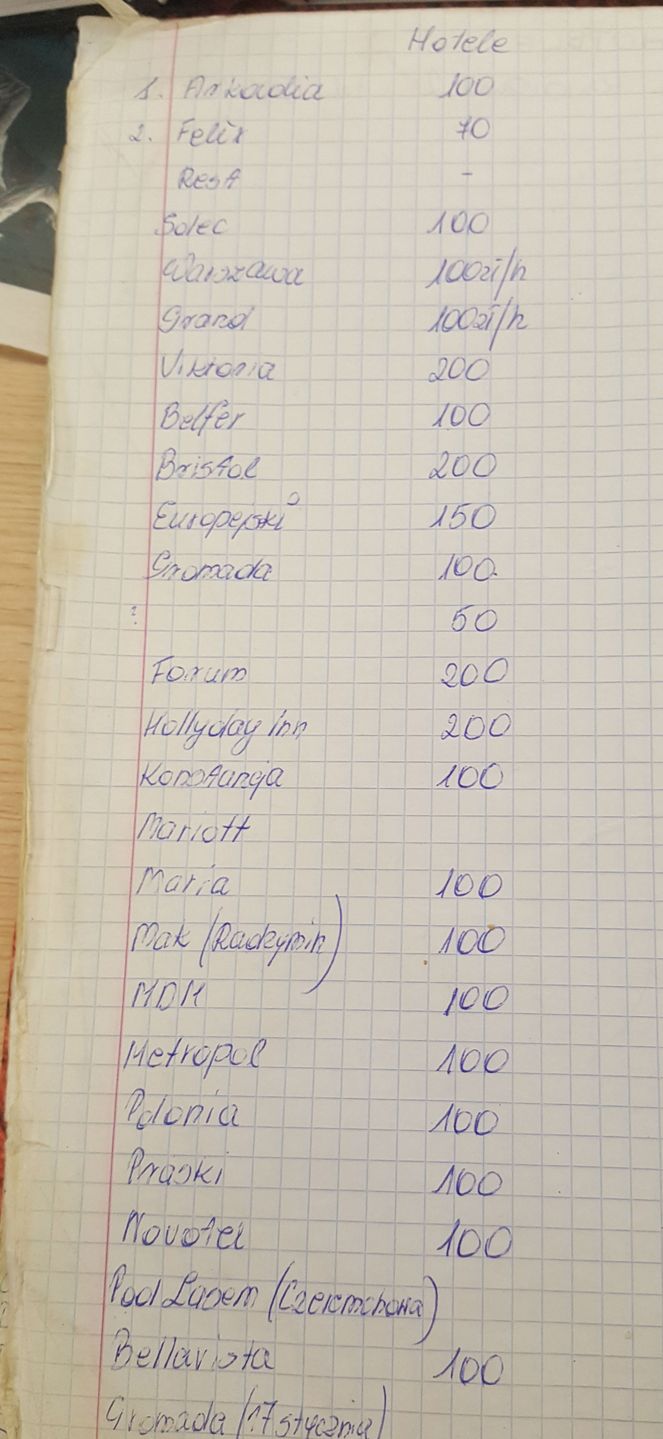 Hotele
1. Arkadia 100
2. Felix 70
Resa -
Solec 100
Warszawa 100zł/h
Grand 100zł/h
Viktoria 200
Belfer 100
Bristol 200
Europejski 150
Gromada 100
? 50
Forum 200
Hollyday inn 200
Konstancja 100
Mariott
Maria 100
Mak (Radzymin) 100
MDM 100
Metropol 100
Polonia 100
Praski 100
Novotel 100
Pod Lasem (Czeremchowa)
Bellavista 100
Gromada (17 stycznia)